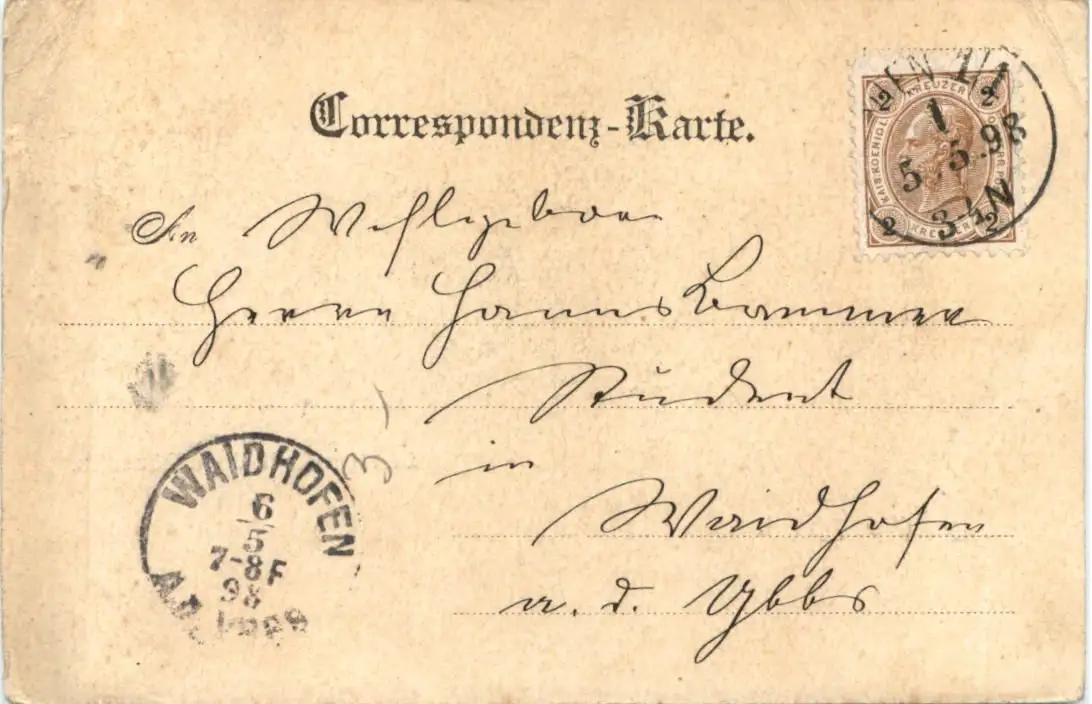 Correspondenz-Karte.
An Wohlgeboren
Herrn Hanns Kammerer
Student
in
Waidhofen
a. d. Ybbs
2 KREUZER 2
KAIS. KOENIGL.
2 KREUZER 2
WIEN 1/1
1
5. 5. 98
3-4 N
3
WAIDHOFEN
6
5
7-8 F
98
A.D. YBBS